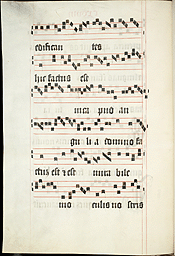 edifican tes
hic factus est
in ca put an
gu li a domino fa
ctus est et est mira bile
in o culis no stris